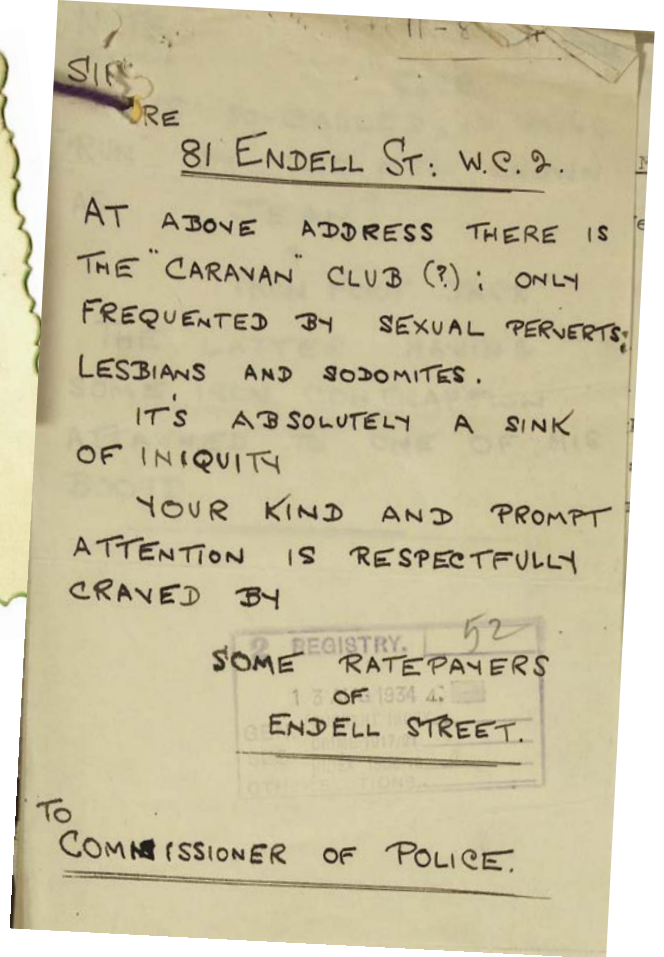 11-8
SIR
RE
81 ENDELL ST: W.C.2.
AT ABOVE ADDRESS THERE IS
THE "CARAVAN" CLUB (?); ONLY
FREQUENTED BY SEXUAL PERVERTS;
LESBIANS AND SODOMITES.
IT'S ABSOLUTELY A SINK
OF INIQUITY
YOUR KIND AND PROMPT
ATTENTION IS RESPECTFULLY
CRAVED BY
52
REGISTRY.
SOME RATEPAYERS
1934
OF
ENDELL STREET.
TO
COMMISSIONER OF POLICE.